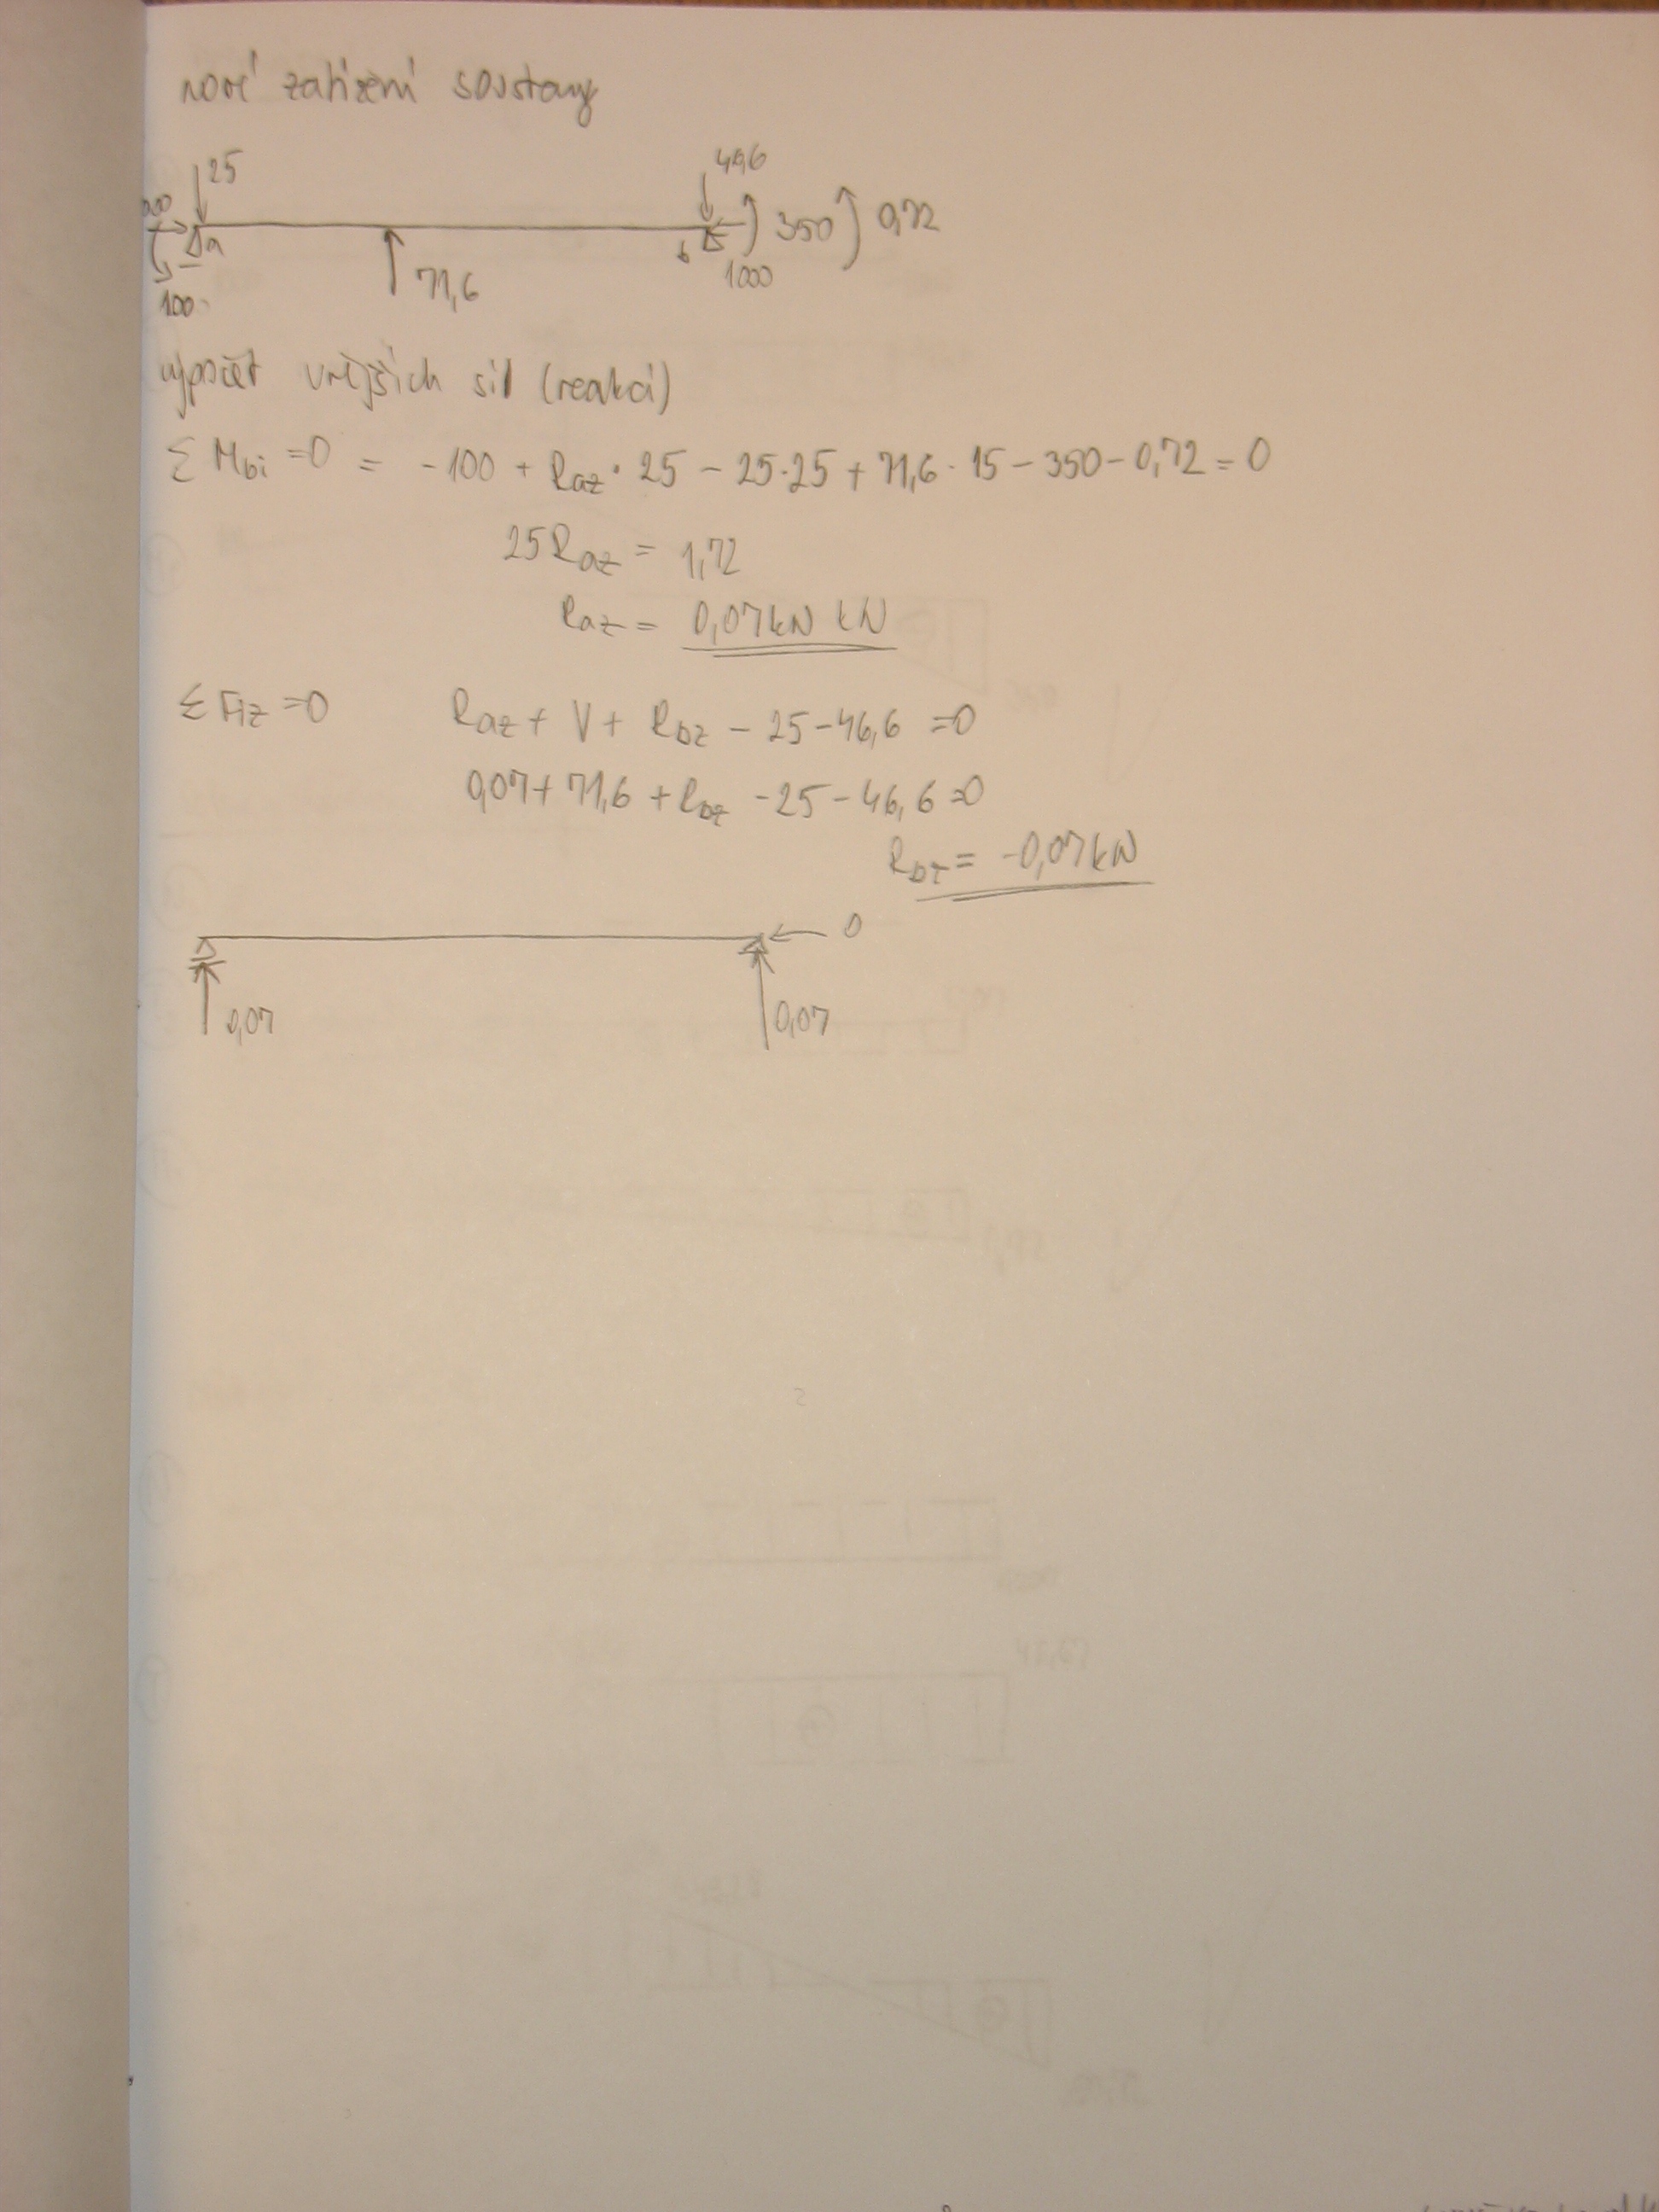 nové zatížení soustavy
25
46,6
350
0,72
a
b
1000
100
71,6
výpočet vnějších sil (reakcí)
Σ Mbi =0 = -100 + Raz · 25 - 25·25 + 71,6 · 15 - 350 - 0,72 = 0
25Raz = 1,72
Raz = 0,07kN kN
Σ Fiz =0 Raz + V + Rbz - 25 - 46,6 =0
0,07+ 71,6 + Rbz - 25 - 46,6 =0
Rbz = -0,07kN
0
0,07
0,07